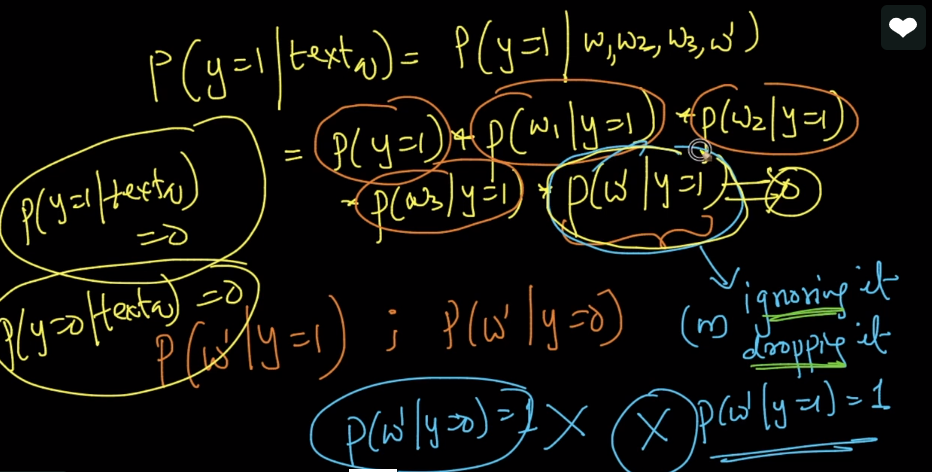 P(y=1|text_w) = P(y=1|w₁,w₂,w₃,w')
= P(y=1) * P(w₁|y=1) * P(w₂|y=1)
* P(w₃|y=1) * P(w'|y=1) = 0
P(y=1|text_w)
=0
P(y=0|text_w) =0
P(w'|y=1) ; P(w'|y=0)
(or) ignoring it
dropping it
P(w'|y=0)=1 X X P(w'|y=1)=1